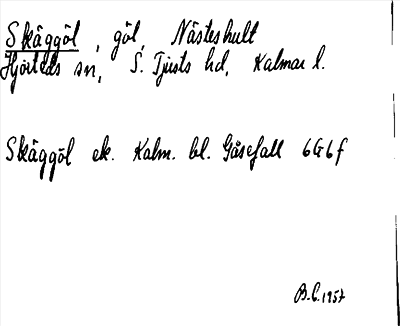 Skäggöl, göl, Nästeshult
Hjorteds sn, S. Tjusts hd, Kalmar l.
Skäggöl ek. Kalm. bl. Gåsefall 6G6f
B.C. 1957